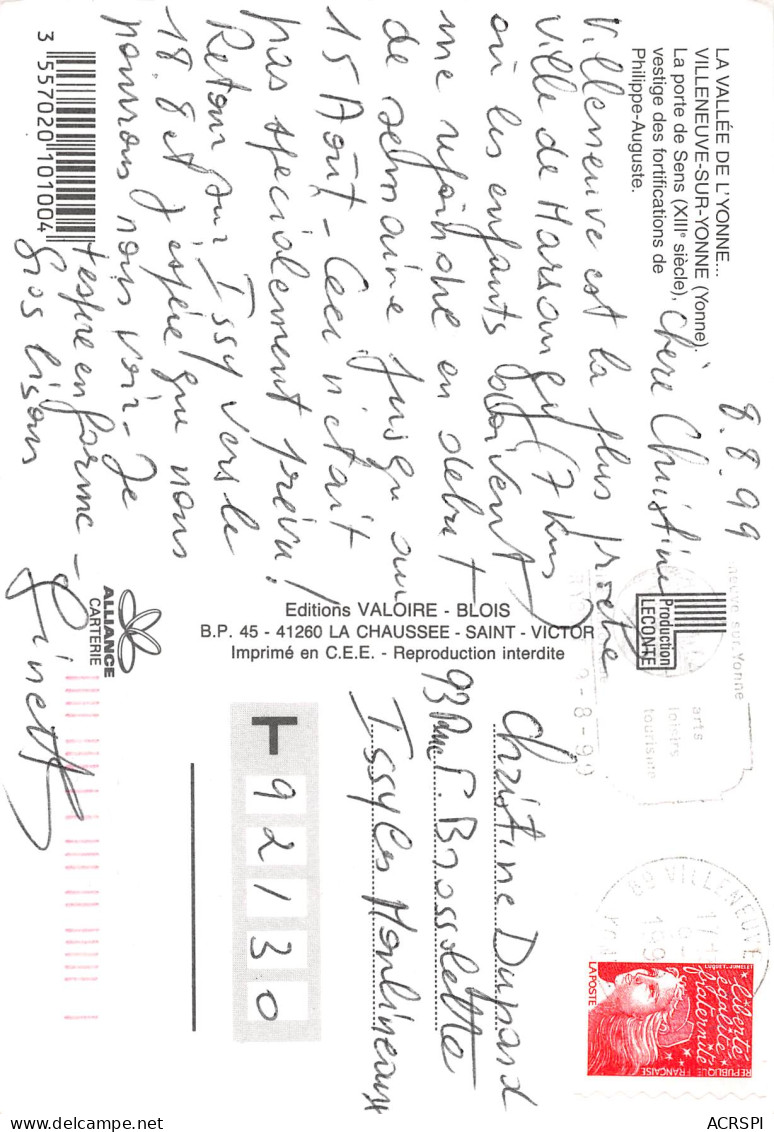 LA VALLÉE DE L'YONNE...
VILLENEUVE-SUR-YONNE (Yonne).
La porte de Sens (XIIIe siècle),
vestige des fortifications de
Philippe-Auguste.
8.8.99
Chère Christine
Villeneuve est la plus proche
ville de Marsangy (7 kms)
où les enfants doivent
me rejoindre en debut
de semaine jusqu'au
15 Août - Ceci n'était
pas specialement prévu !
Retour sur Issy vers le
18.8 et j'espère que nous
pourrons nous voir - Je
t'espère en forme -
Gros bisous
Ginette
3 557020 101004
ALLIANCE
CARTERIE
Editions VALOIRE - BLOIS
B.P. 45 - 41260 LA CHAUSSEE - SAINT - VICTOR
Imprimé en C.E.E. - Reproduction interdite
Production
LECONTE
neuve sur Yonne
arts
loisirs
tourisme
9-8-99
89 VILLENEUVE
Christine Dupard
93 Rue P. Brossolette
Issy Les Moulineaux
T 92130
liberté
égalité
fraternité
RÉPUBLIQUE FRANÇAISE
LA POSTE
ACRSPI